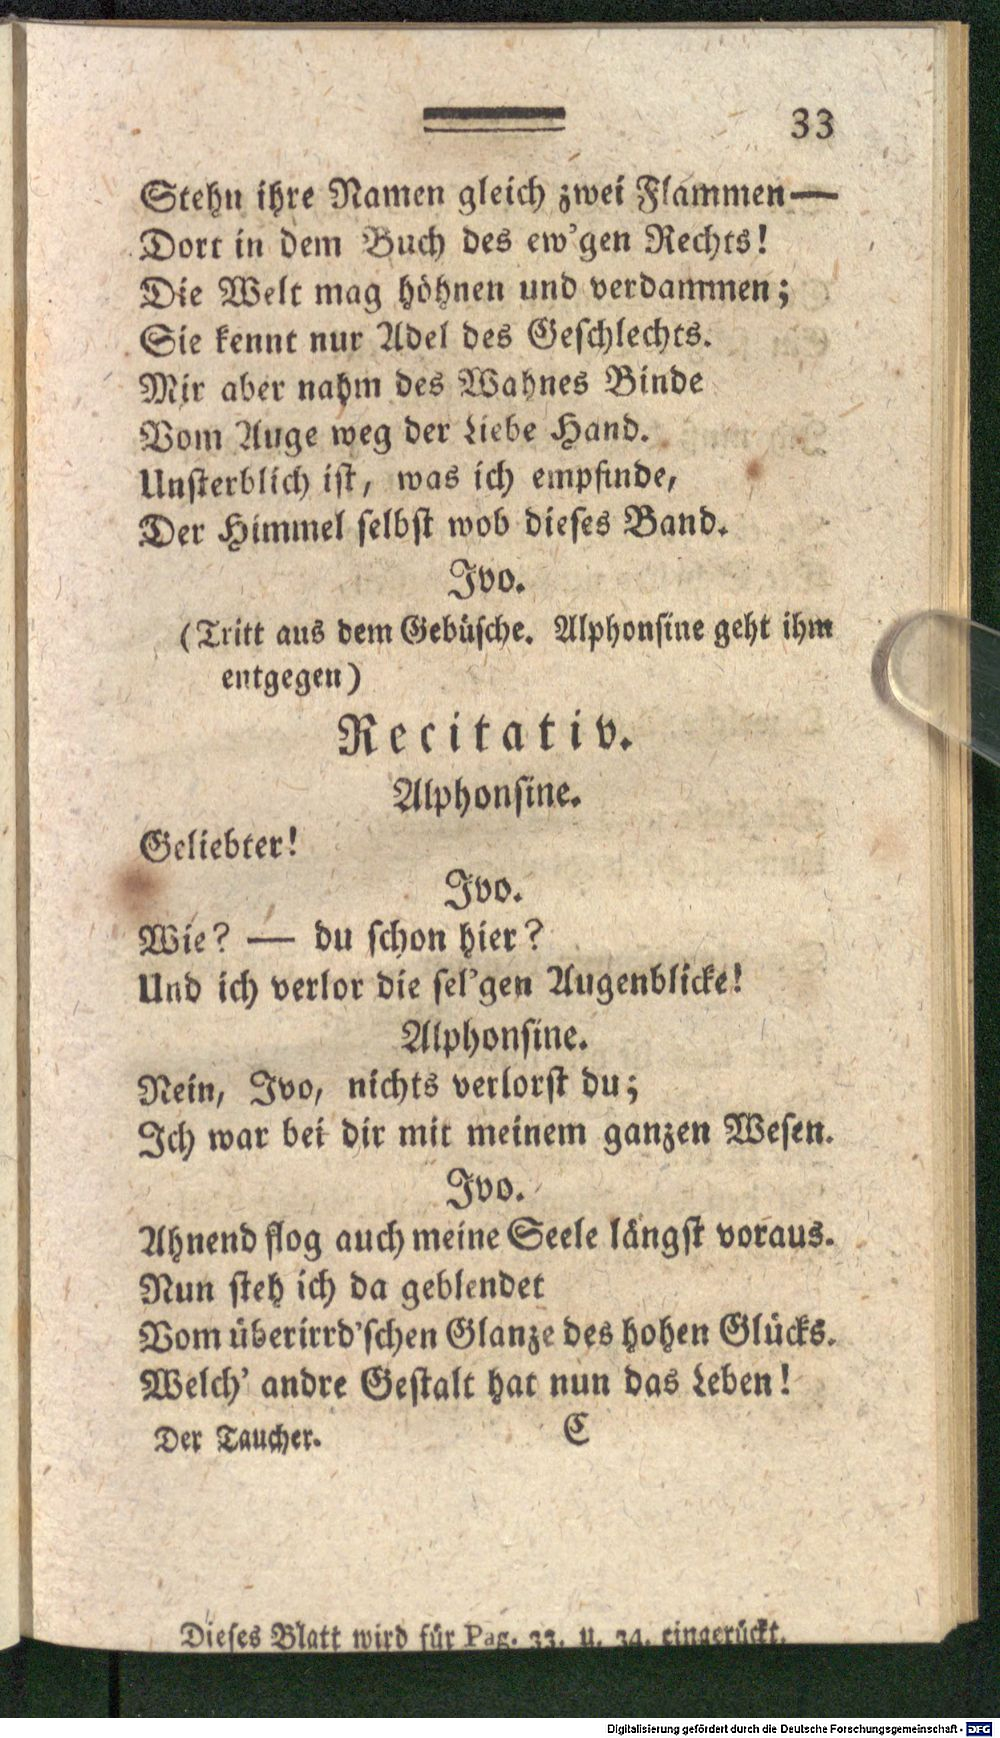 33
Stehn ihre Namen gleich zwei Flammen—
Dort in dem Buch des ew'gen Rechts!
Die Welt mag höhnen und verdammen;
Sie kennt nur Adel des Geschlechts.
Mir aber nahm des Wahnes Binde
Vom Auge weg der Liebe Hand.
Unsterblich ist, was ich empfinde,
Der Himmel selbst wob dieses Band.
Ivo.
(Tritt aus dem Gebüsche. Alphonsine geht ihm
entgegen)
Recitativ.
Alphonsine.
Geliebter!
Ivo.
Wie? — du schon hier?
Und ich verlor die sel'gen Augenblicke!
Alphonsine.
Nein, Ivo, nichts verlorst du;
Ich war bei dir mit meinem ganzen Wesen.
Ivo.
Ahnend flog auch meine Seele längst voraus.
Nun steh ich da geblendet
Vom überirrd'schen Glanze des hohen Glücks.
Welch' andre Gestalt hat nun das Leben!
Der Taucher. C
Dieses Blatt wird für Pag. 33. u. 34. eingerückt.
Digitalisierung gefördert durch die Deutsche Forschungsgemeinschaft - DFG